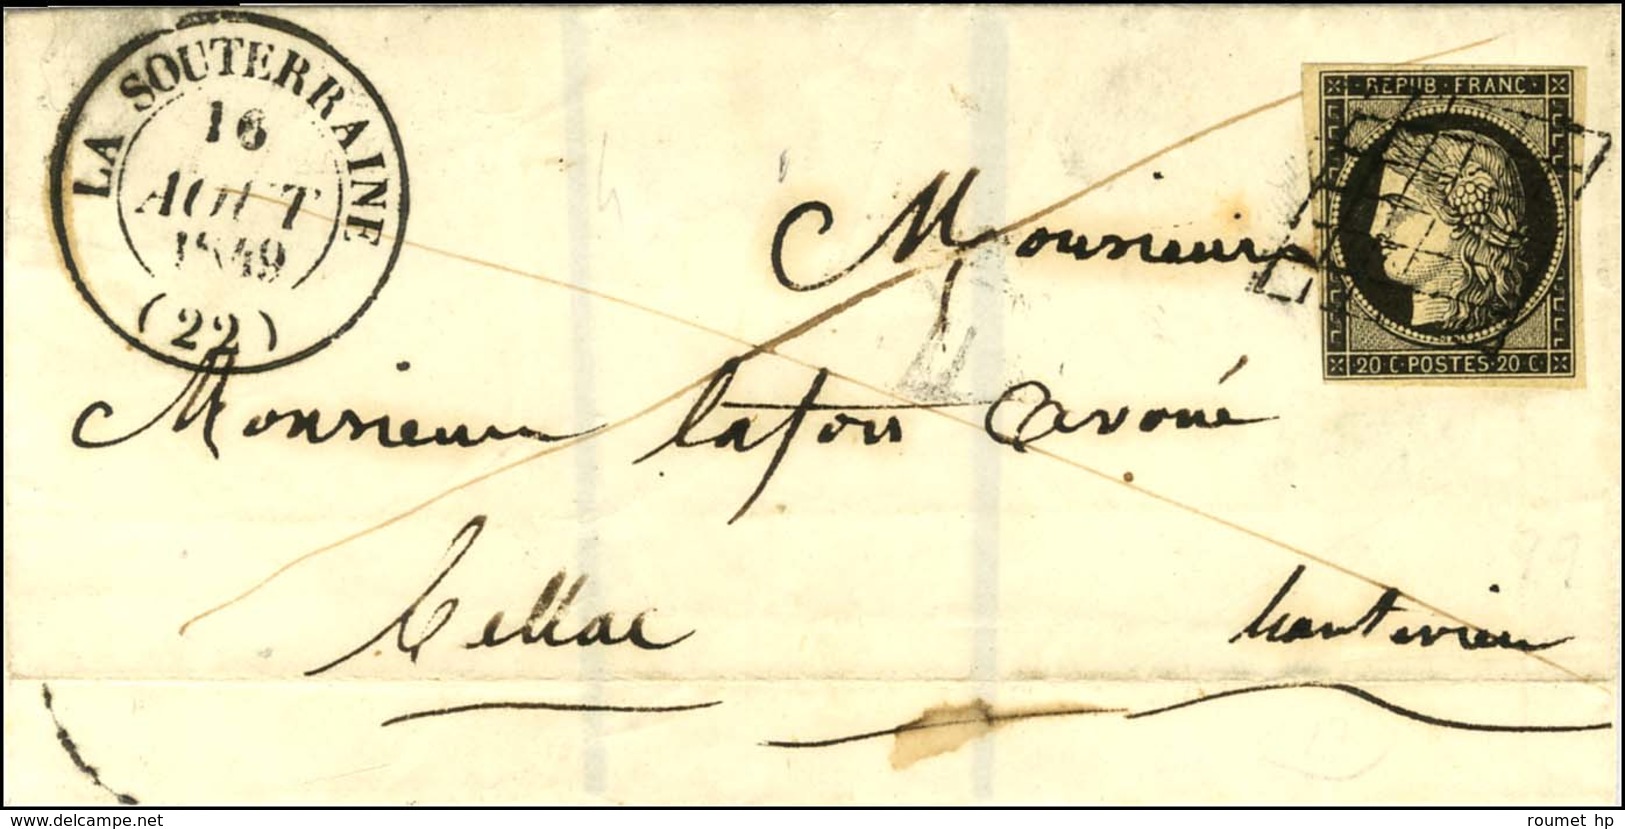 LA SOUTERRAINE
16
AOUT
1849
(22)
REPUB·FRANC
20 C·POSTES·20 C
Monsieur
Monsieur lafon avoué
Bellac
hautevien
delcampe.net
roumet hp